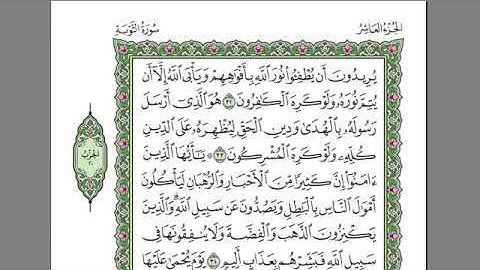 الجزء العاشر
سورة التوبة
يُرِيدُونَ أَن يُطْفِـُٔوا۟ نُورَ ٱللَّهِ بِأَفْوَٰهِهِمْ وَيَأْبَى ٱللَّهُ إِلَّآ أَن
يُتِمَّ نُورَهُۥ وَلَوْ كَرِهَ ٱلْكَٰفِرُونَ ٣٢ هُوَ ٱلَّذِىٓ أَرْسَلَ
رَسُولَهُۥ بِٱلْهُدَىٰ وَدِينِ ٱلْحَقِّ لِيُظْهِرَهُۥ عَلَى ٱلدِّينِ
كُلِّهِۦ وَلَوْ كَرِهَ ٱلْمُشْرِكُونَ ٣٣ ۞ يَٰٓأَيُّهَا ٱلَّذِينَ
ءَامَنُوٓا۟ إِنَّ كَثِيرًا مِّنَ ٱلْأَحْبَارِ وَٱلرُّهْبَانِ لَيَأْكُلُونَ
أَمْوَٰلَ ٱلنَّاسِ بِٱلْبَٰطِلِ وَيَصُدُّونَ عَن سَبِيلِ ٱللَّهِ وَٱلَّذِينَ
يَكْنِزُونَ ٱلذَّهَبَ وَٱلْفِضَّةَ وَلَا يُنفِقُونَهَا فِى
سَبِيلِ ٱللَّهِ فَبَشِّرْهُم بِعَذَابٍ أَلِيمٍ ٣٤ يَوْمَ يُحْمَىٰ عَلَيْهَا
الحزب